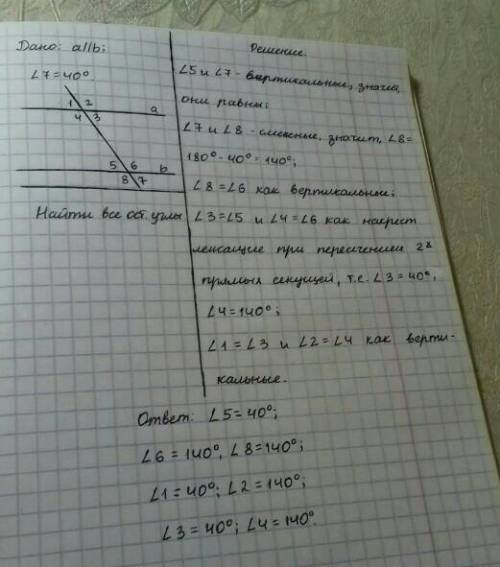 Дано: a||b;
∠7=40°
1 2
a
4 3
5 6
b
8 7
Найти все ост. углы
Решение.
∠5 и ∠7 - вертикальные, значит,
они равны;
∠7 и ∠8 - смежные, значит, ∠8=
180°-40°=140°;
∠8=∠6 как вертикальные;
∠3=∠5 и ∠4=∠6 как накрест
лежащие при пересечении 2х
прямых секущей, т.е. ∠3=40°,
∠4=140°;
∠1=∠3 и ∠2=∠4 как верти-
кальные.
Ответ: ∠5=40°;
∠6=140°, ∠8=140°;
∠1=40°; ∠2=140°;
∠3=40°; ∠4=140°.